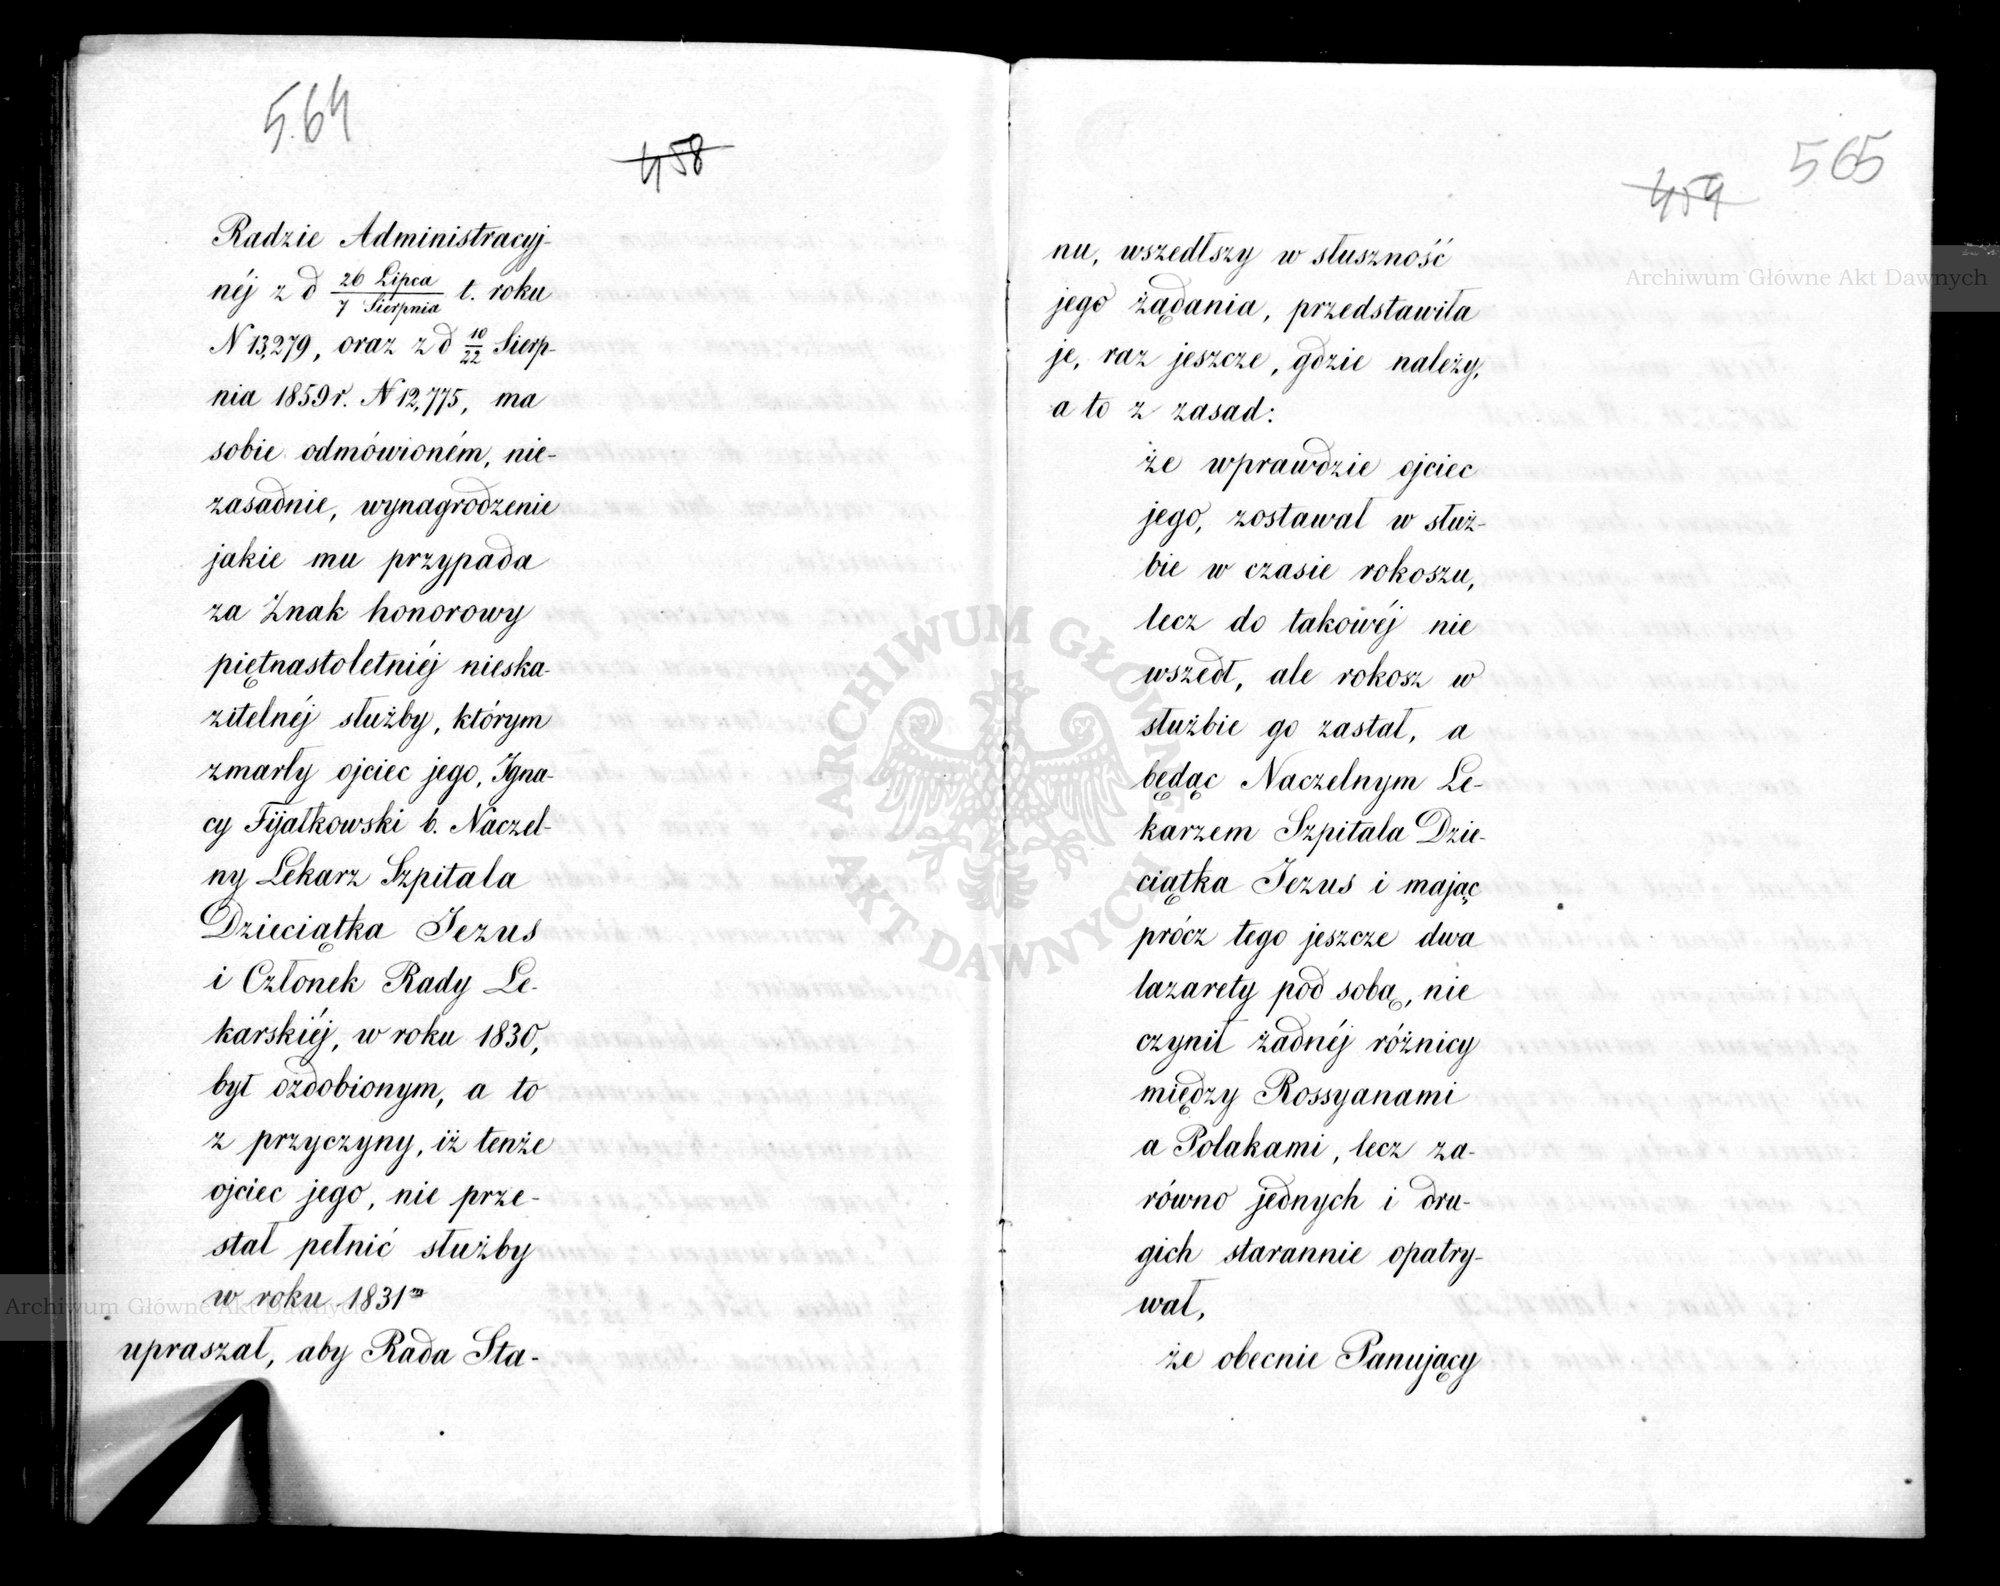 564
458
Radzie Administracyj-
néj z d 26 Lipca / 7 Sierpnia t. roku
N 13,279, oraz z d 10/22 Sierp-
nia 1859 r. N 12,775, ma
sobie odmówioném, nie-
zasadnie, wynagrodzenie
jakie mu przypada
za Znak honorowy
piętnastoletniéj nieska-
zitelnéj służby, którym
zmarły ojciec jego, Igna-
cy Fijałkowski b. Naczel-
ny Lekarz Szpitala
Dzieciątka Jezus
i Członek Rady Le-
karskiéj, w roku 1830,
był ozdobionym, a to
z przyczyny, iż tenże
ojciec jego, nie prze-
stał pełnić służby
w roku 1831m
upraszał, aby Rada Sta-
565
459
nu, wszedłszy w słuszność
jego żądania, przedstawiła
je, raz jeszcze, gdzie należy,
a to z zasad:
że wprawdzie ojciec
jego, zostawał w służ-
bie w czasie rokoszu,
lecz do takowéj nie
wszedł, ale rokosz w
służbie go zastał, a
będąc Naczelnym Le-
karzem Szpitala Dzie-
ciątka Jezus i mając
prócz tego jeszcze dwa
lazarety pod sobą, nie
czynił żadnéj różnicy
między Rossyanami
a Polakami, lecz za-
równo jednych i dru-
gich starannie opatry-
wał,
że obecnie Panujący
Archiwum Główne Akt Dawnych
Archiwum Główne Akt Dawnych
ARCHIWUM GŁÓWNE AKT DAWNYCH